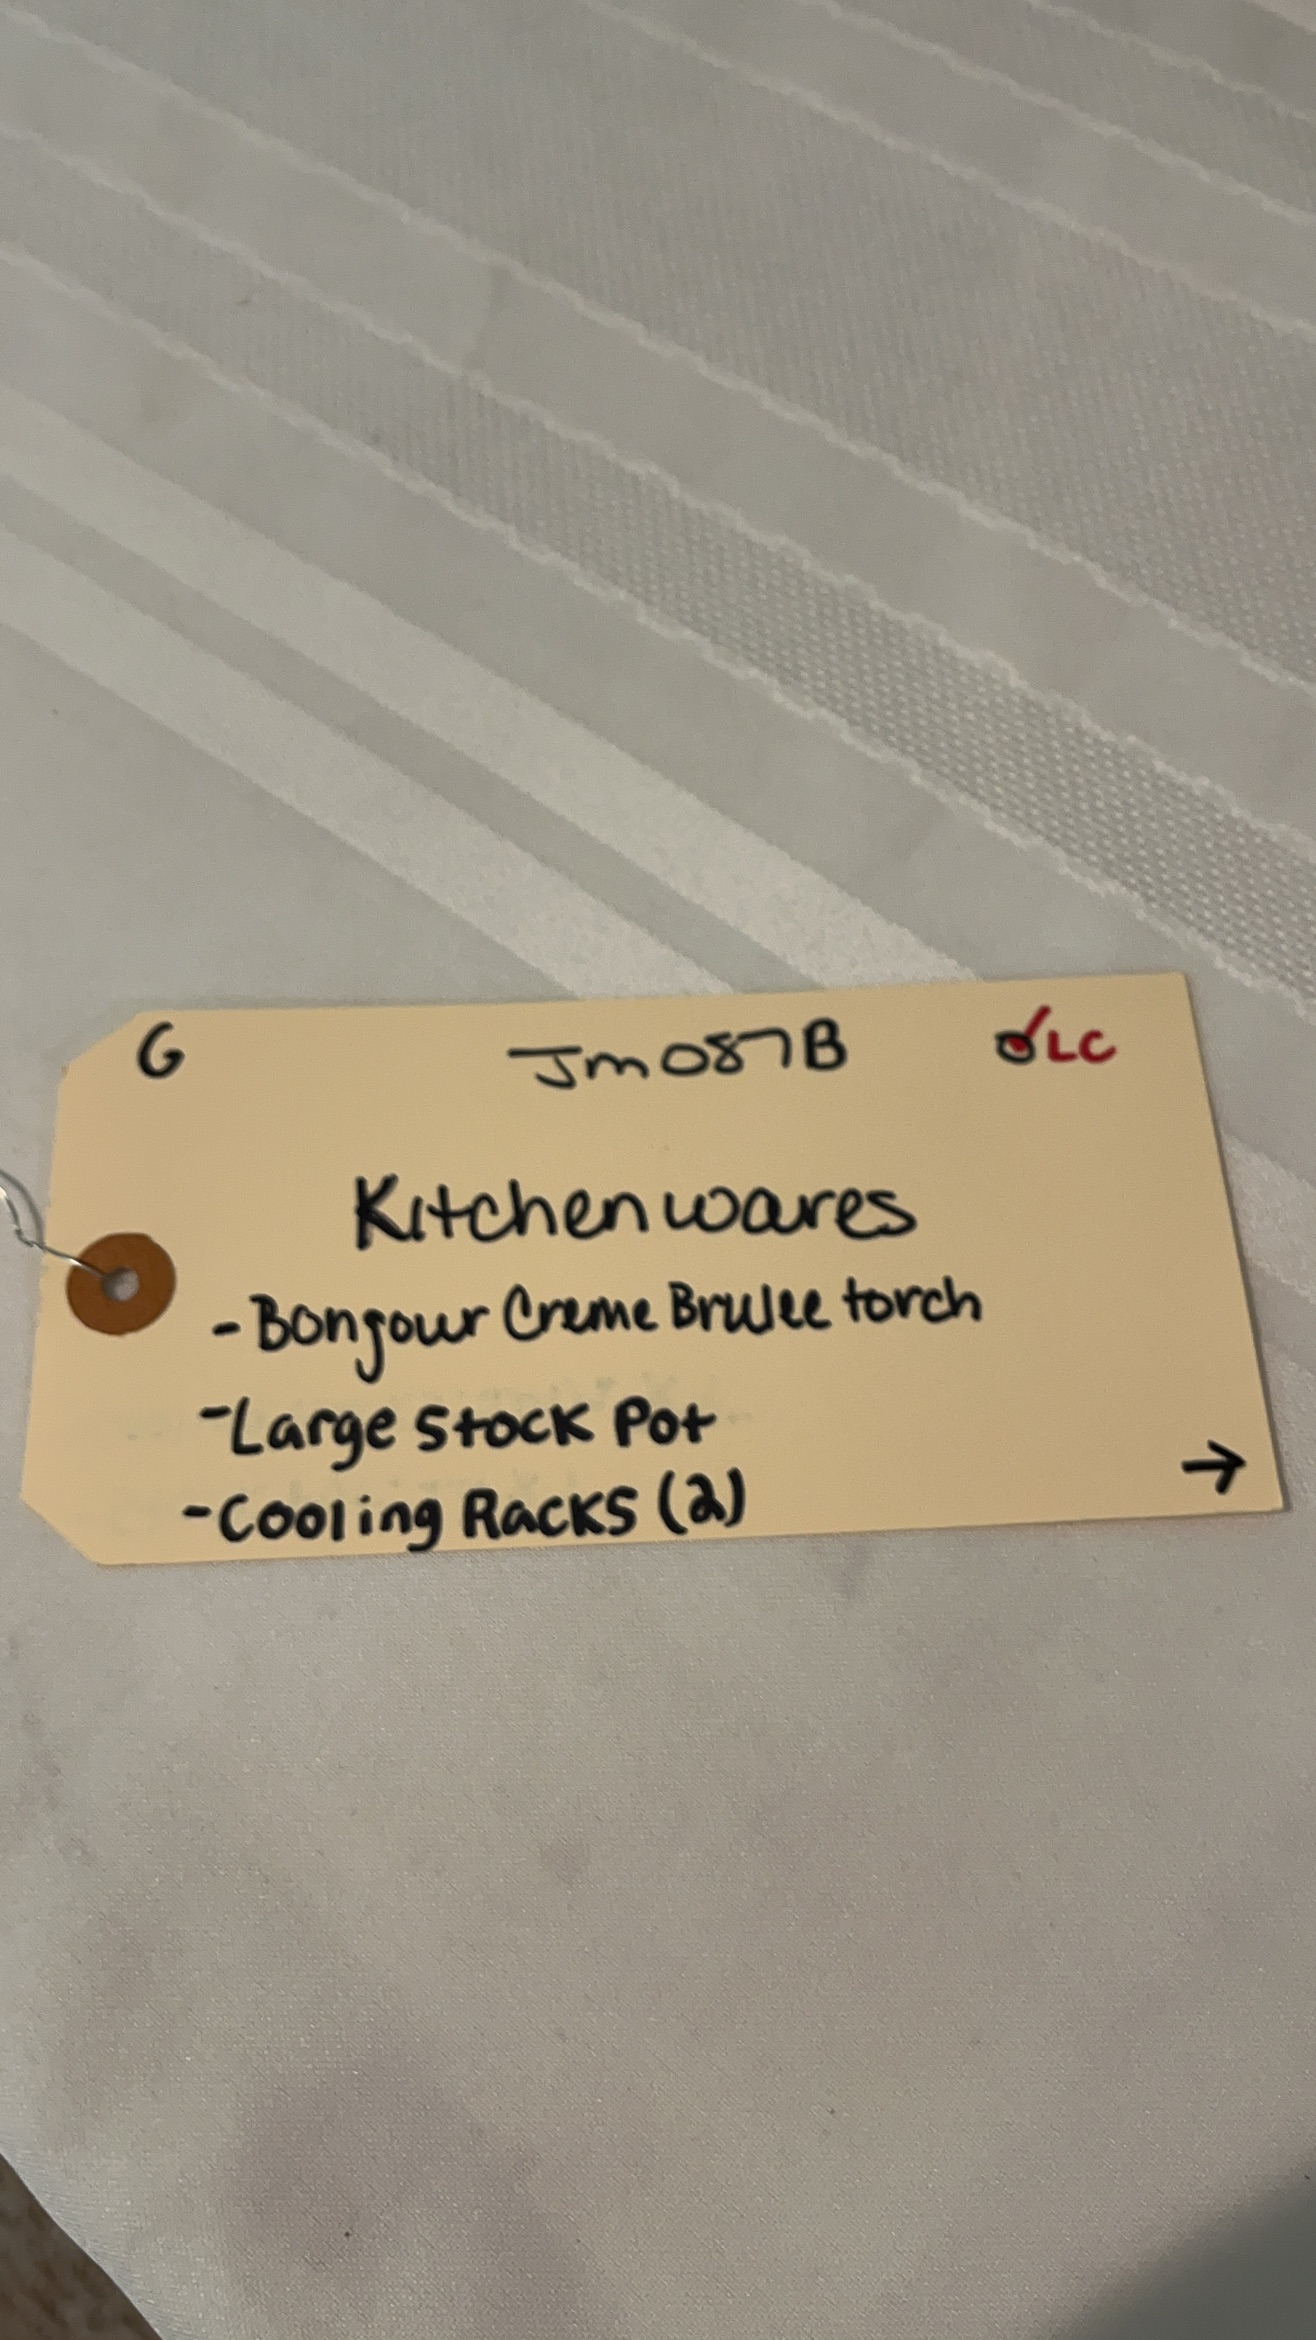 G Jm087B LC
Kitchenwares
- Bonjour Creme Brulee torch
- Large Stock Pot
- Cooling Racks (2) →